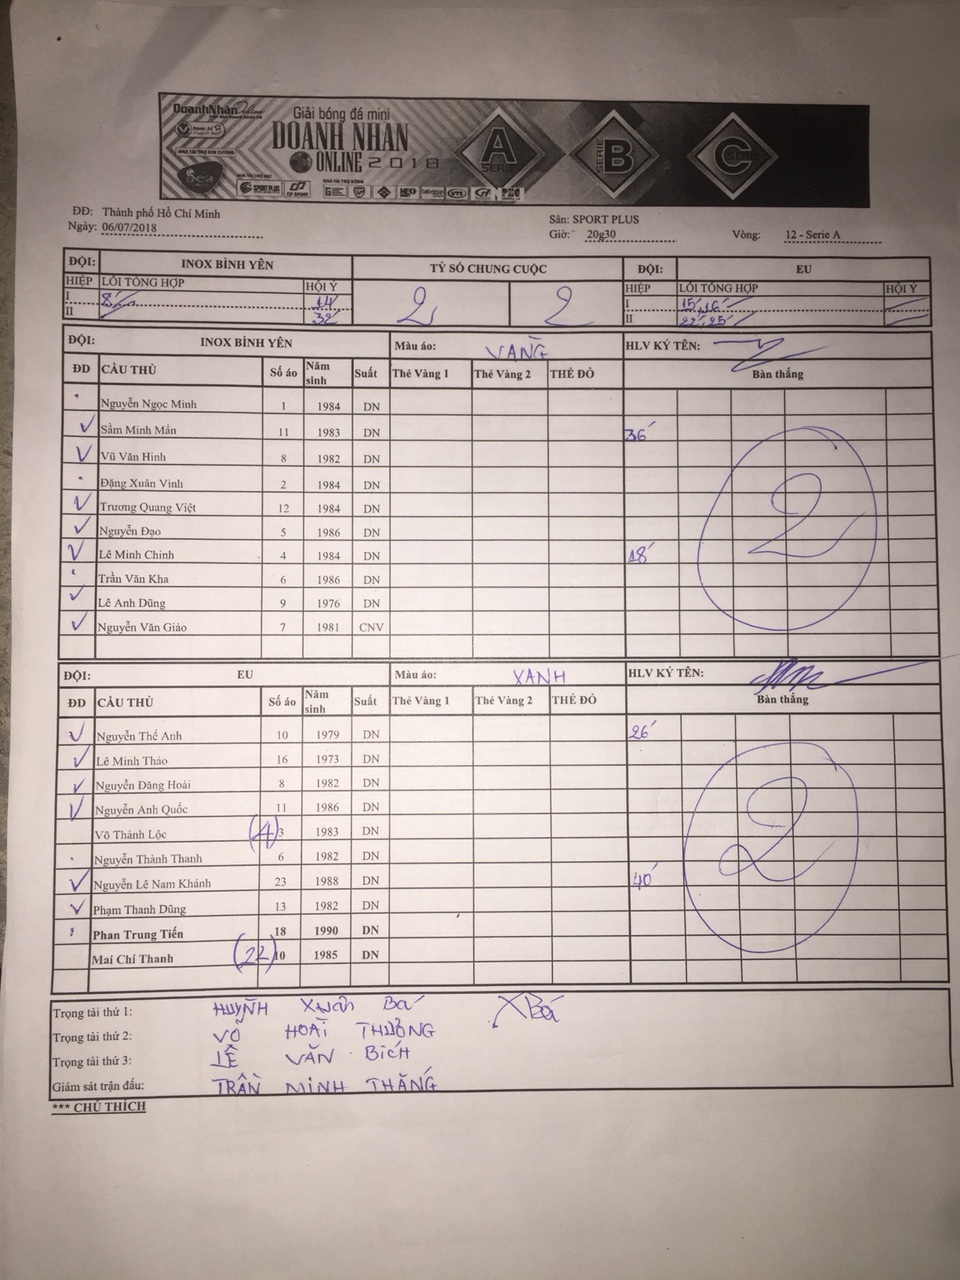 DoanhNhanOnline
Giải bóng đá mini
DOANH NHÂN
ONLINE 2018
NHÀ TÀI TRỢ KIM CƯƠNG
Sea
SPORT PLUS
A SERIE
B SERIE
C SERIE
ĐĐ: Thành phố Hồ Chí Minh
Sân: SPORT PLUS
Ngày: 06/07/2018 Giờ: 20g30 Vòng: 12 - Serie A
ĐỘI: INOX BÌNH YÊN TỶ SỐ CHUNG CUỘC ĐỘI: EU
HIỆP LỖI TỔNG HỢP HỘI Ý 2 2 HIỆP LỖI TỔNG HỢP HỘI Ý
I 8' 14' I 15', 16'
II 32' II 22', 25'
ĐỘI: INOX BÌNH YÊN Màu áo: VÀNG HLV KÝ TÊN:
ĐD CẦU THỦ Số áo Năm sinh Suất Thẻ Vàng 1 Thẻ Vàng 2 THẺ ĐỎ Bàn thắng
Nguyễn Ngọc Minh 1 1984 DN
Sầm Minh Mẫn 11 1983 DN 36'
Vũ Văn Hinh 8 1982 DN
Đặng Xuân Vinh 2 1984 DN
2
Trương Quang Việt 12 1984 DN
Nguyễn Đạo 5 1986 DN
Lê Minh Chinh 4 1984 DN 18'
Trần Văn Kha 6 1986 DN
Lê Anh Dũng 9 1976 DN
Nguyễn Văn Giáo 7 1981 CNV
ĐỘI: EU Màu áo: XANH HLV KÝ TÊN:
ĐD CẦU THỦ Số áo Năm sinh Suất Thẻ Vàng 1 Thẻ Vàng 2 THẺ ĐỎ Bàn thắng
Nguyễn Thế Anh 10 1979 DN 26'
Lê Minh Thảo 16 1973 DN
Nguyễn Đăng Hoài 8 1982 DN
Nguyễn Anh Quốc 11 1986 DN
Võ Thành Lộc (4) 3 1983 DN
2
Nguyễn Thành Thanh 6 1982 DN
Nguyễn Lê Nam Khánh 23 1988 DN 40'
Phạm Thanh Dũng 13 1982 DN
Phan Trung Tiến 18 1990 DN
Mai Chí Thanh (22) 10 1985 DN
Trọng tài thứ 1: HUỲNH XUÂN BÁ XBá
Trọng tài thứ 2: VÕ HOÀI THƯƠNG
Trọng tài thứ 3: LÊ VĂN BÍCH
Giám sát trận đấu: TRẦN MINH THẮNG
*** CHÚ THÍCH